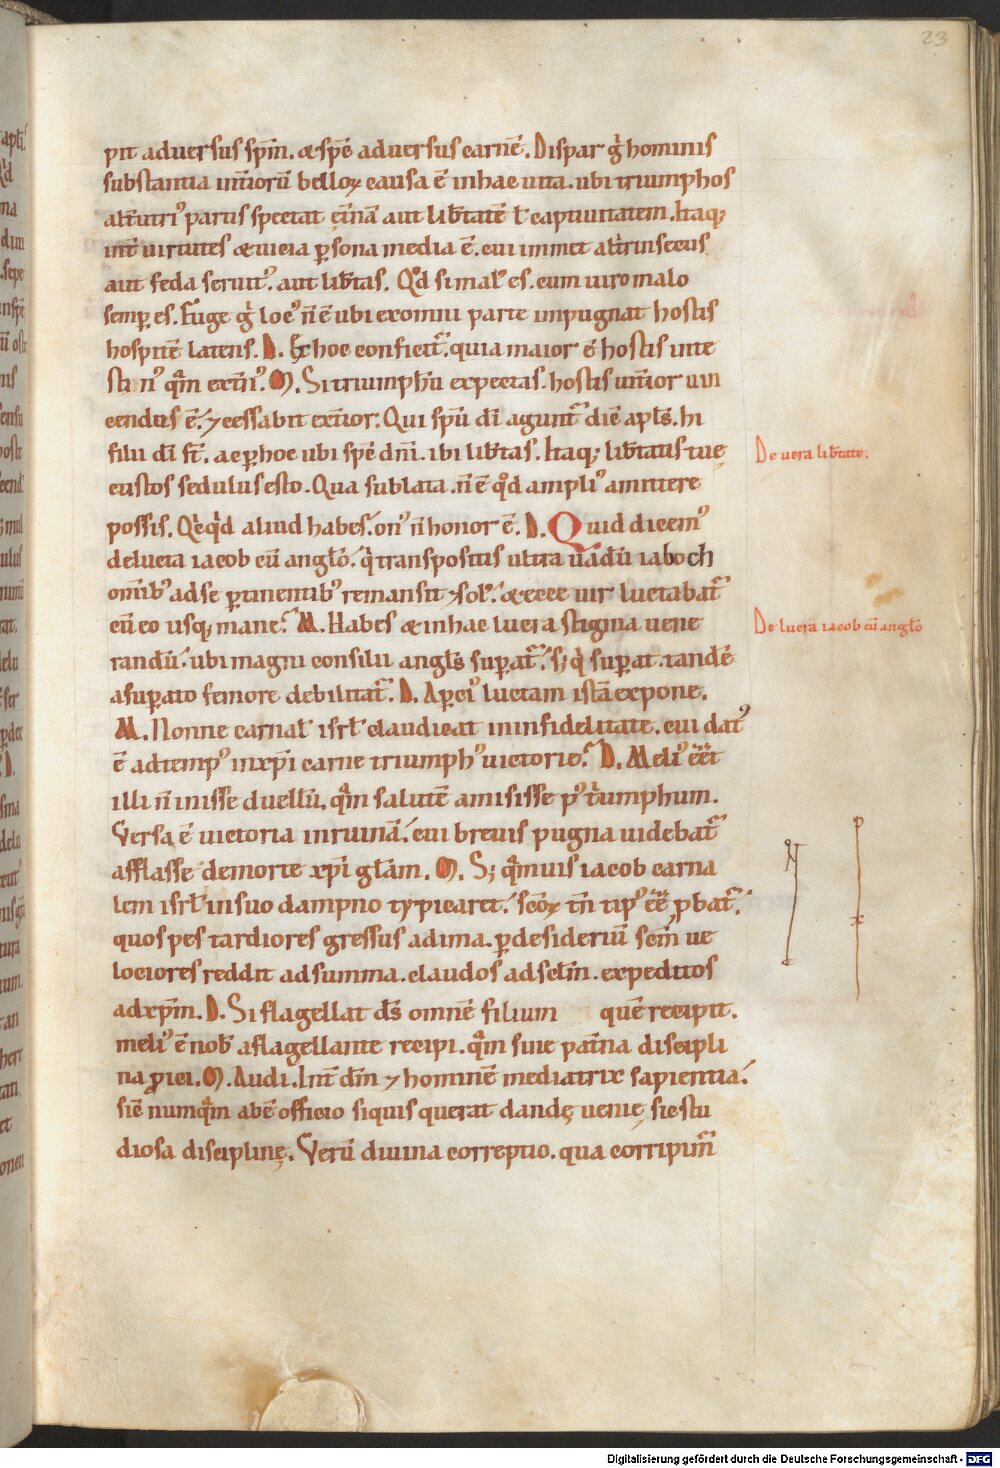 23
pit adversus spm̄. & spē adversus carnē. Dispar gͥ hominis
substantia inťiorū belloꝝ causa ē in hac uita. ubi triumphos
alťutriꝰ partis spectat ęťnā aut libťtatē ł captiuitatem. Itaq;
inť uirtutes & uicia ꝑsona media ē. cui immet alťinsecus
aut feda seruitꝰ. aut libťtas. Qd̓ si malꝰ es. cum uiro malo
semꝑ es. Fuge gͥ locꝰ n̄ ē ubi ex omni parte impugnat hostis
hospitē latens. D. Ex hoc conficit᷑. quia maior ē hostis inte
stinꝰ qͣm exťnꝰ. M. Si triumphū expectas. hostis inťior uin
cendus ē. ⁊ cessabit exťior. Qui spū dī agunt᷑ dic̄ apl̄s. hi
filii dī st̄. ac ꝑ hoc ubi spc̄ dn̄i. ibi libťtas. Itaq; libťtatis tuę
custos sedulus esto. Qua sublata. n̄ ē qd̓ ampliꝰ amittere
possis. Qͥcqͥd aliud habes. onꝰ n̄ honor ē. D. Quid dicemꝰ
de lucta iacob cū angl̄o. qͥ transpositus ultra uadū iaboch
om̄ibꝰ ad se ꝑtinentibꝰ remansit solꝰ. & ecce uir luctabat᷑
cū eo usq; mane? M. Habes & in hac lucta stigma uene
randū. ubi magni consilii angl̄s suꝑat᷑. s; qͥ suꝑat. tandē
a suꝑato femore debilitat᷑. D. Aꝑciꝰ luctam istā expone.
M. Nonne carnal̓ isrl̓ claudicat in infidelitate. cui datꝰ
ē ad tempꝰ in xp̄i carne triumphꝰ uictorie? D. Meliꝰ eēt
illi n̄ inisse duellū. qͣm salutē amisisse pꝰ tͥumphum.
Versa ē uictoria in ruinā. cui brevis pugna uidebat᷑
afflasse de morte xp̄i gl̄am. M. S; qͣmuis iacob carna
lem isrl̓ in suo dampno typicaret. sc̄oꝝ tn̄ tipꝰ eē ꝓbat᷑.
quos pes tardiores gressus ad ima. ꝑ desideriū sem̄ ue
lociores reddit ad summa. claudos ad sclm̄. expeditos
ad xp̄m. D. Si flagellat ds̄ omnē filium quē recipit.
meliꝰ ē nob̓ a flagellante recipi. qͣm sine paťna discipli
na ꝓici. M. Audi. Inť dm̄ ⁊ hominē mediatrix sapientia.
sic̄ numqͣm abē officio siquis querat dandę uenię sic stu
diosa disciplinę. Verū divina correptio. qua corripim᷑
De uera libťtate.
De lucta iacob cū angl̄o
Digitalisierung gefördert durch die Deutsche Forschungsgemeinschaft - DFG